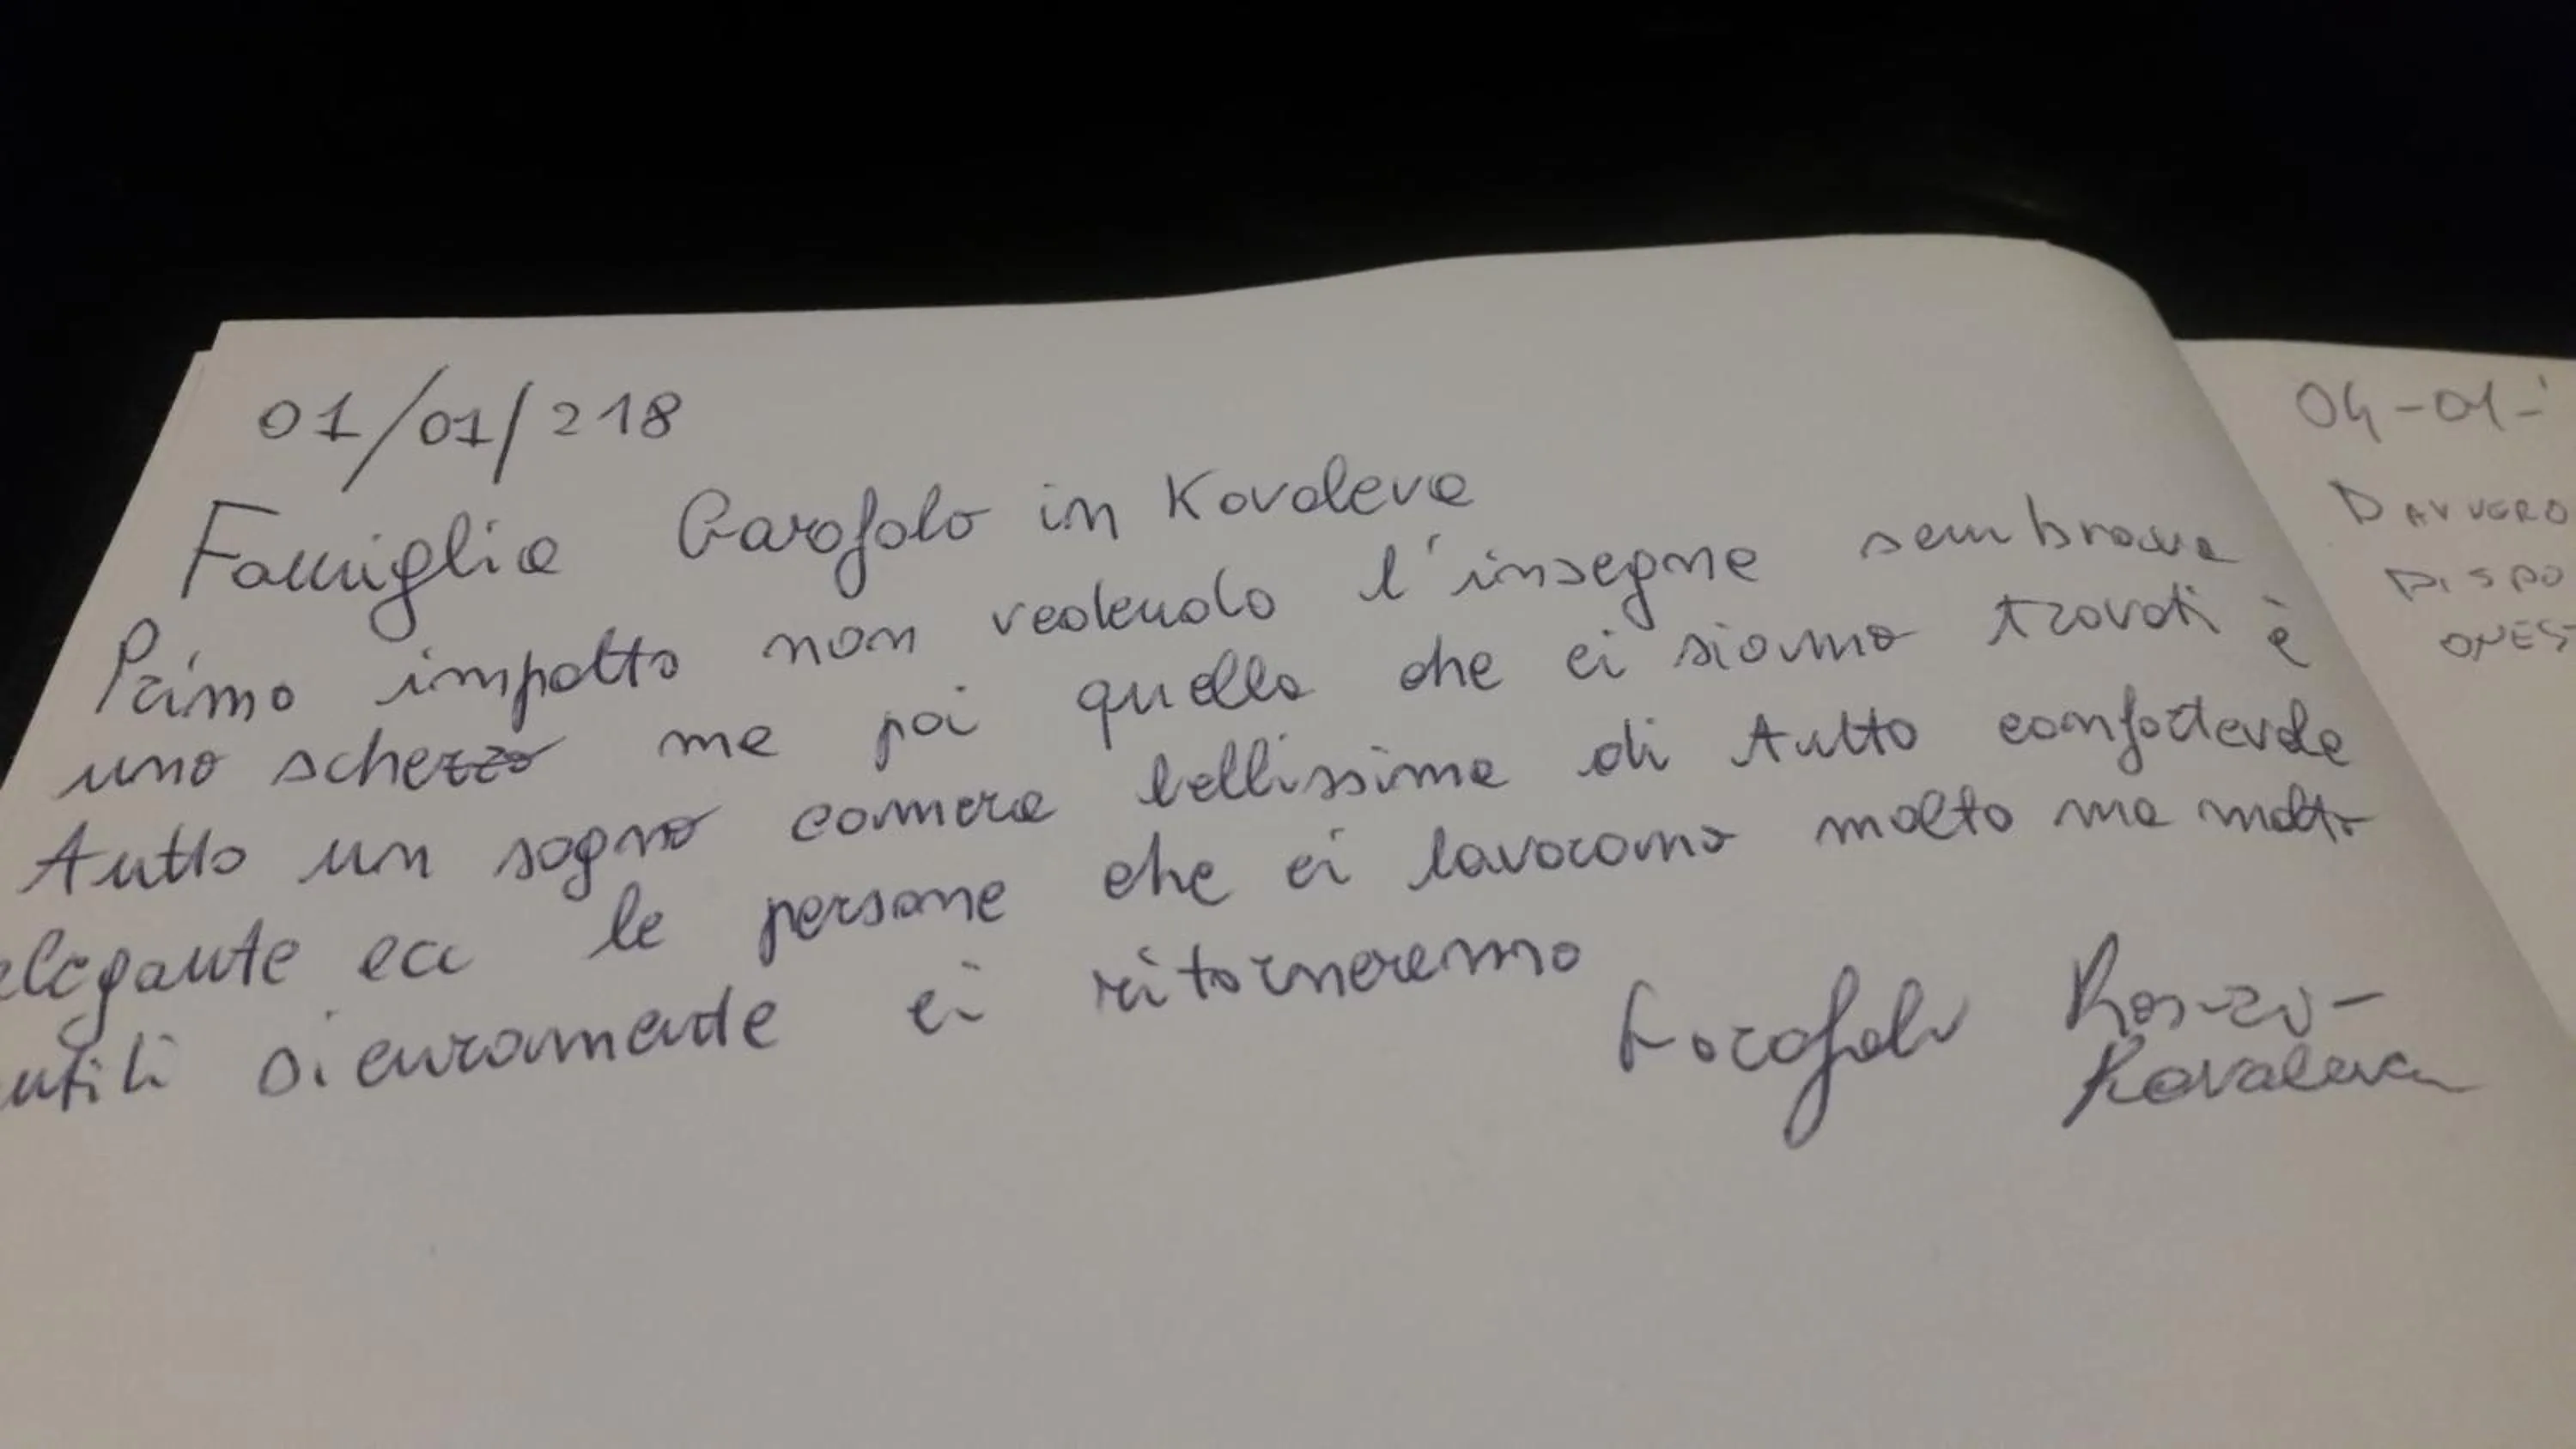 01/01/218
Famiglia Garofolo in Kovaleva
Primo impatto non vedendo l'insegna sembrava
uno scherzo ma poi quello che ci siamo trovati è
tutto un sogno camera bellissima di tutto confortevole
elegante ecc le persone che ci lavorano molto ma molto
utili sicuramente ci ritorneremo
Garofolo
Kovaleva
04-01-
DAVVERO
DISPO
ONES